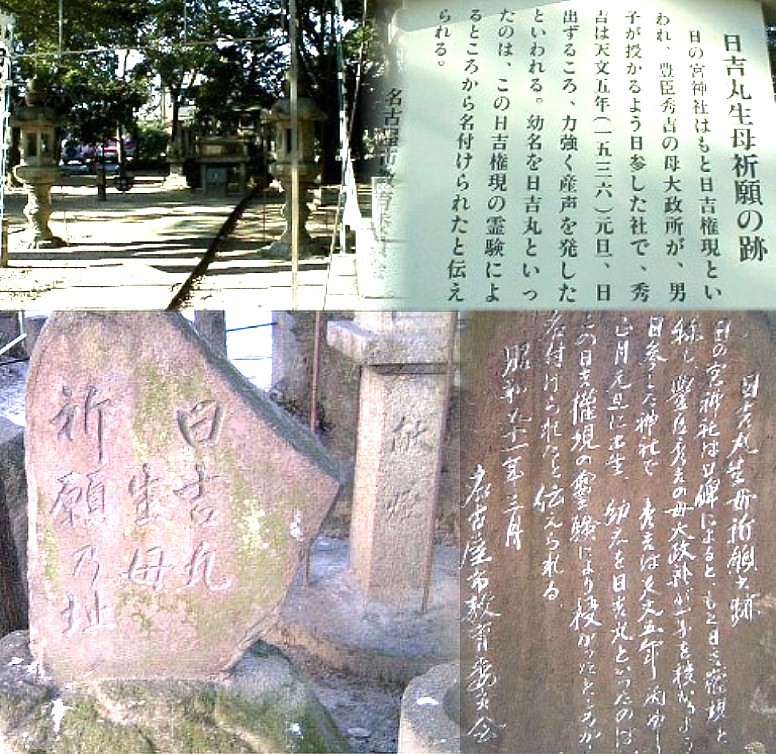 日吉丸生母祈願の跡
日の宮神社はもと日吉権現とい
われ、豊臣秀吉の母大政所が、男
子が授かるよう日参した社で、秀
吉は天文五年(一五三六)元旦、日
出ずるころ、力強く産声を発した
といわれる。幼名を日吉丸といっ
たのは、この日吉権現の霊験によ
るところから名付けられたと伝え
られる。
名古屋市教育委員会
日吉丸
生母
祈願乃址
日吉丸生母祈願之跡
日の宮神社は口碑によると、もと日吉権現と
称し、豊臣秀吉の母大政所が一子を授かるよう
日参した神社で、秀吉は天文五年丙申
正月元旦に出生、幼名を日吉丸といったのは
この日吉権現の霊験により授かったところから
名付けられたと伝えられる
昭和五十一年三月
名古屋市教育委員会